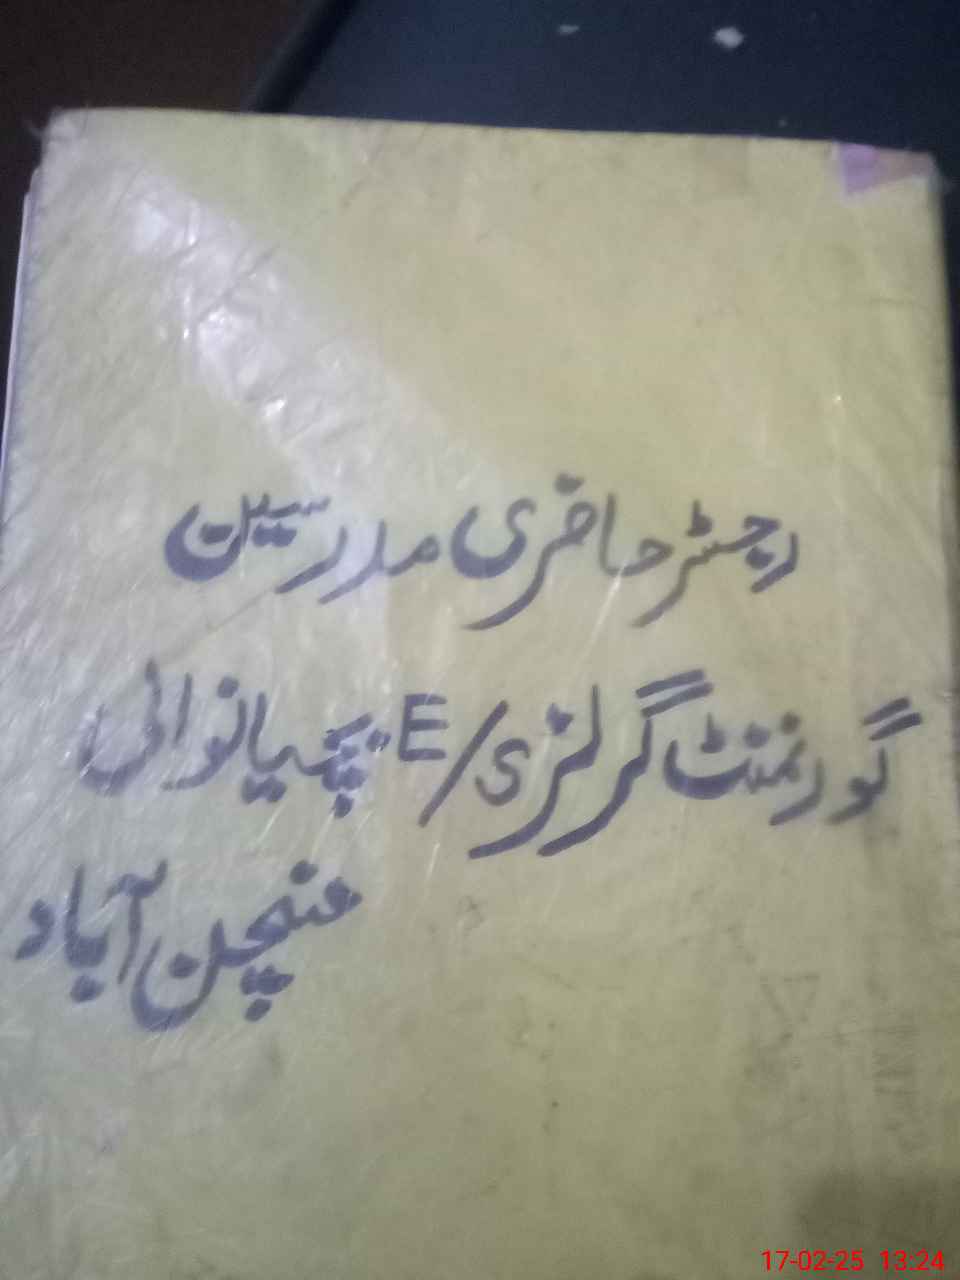 رجسٹر حاضری مدرسین
گورنمنٹ گرلز E/S پچیانوالی
منچن آباد
17-02-25 13:24